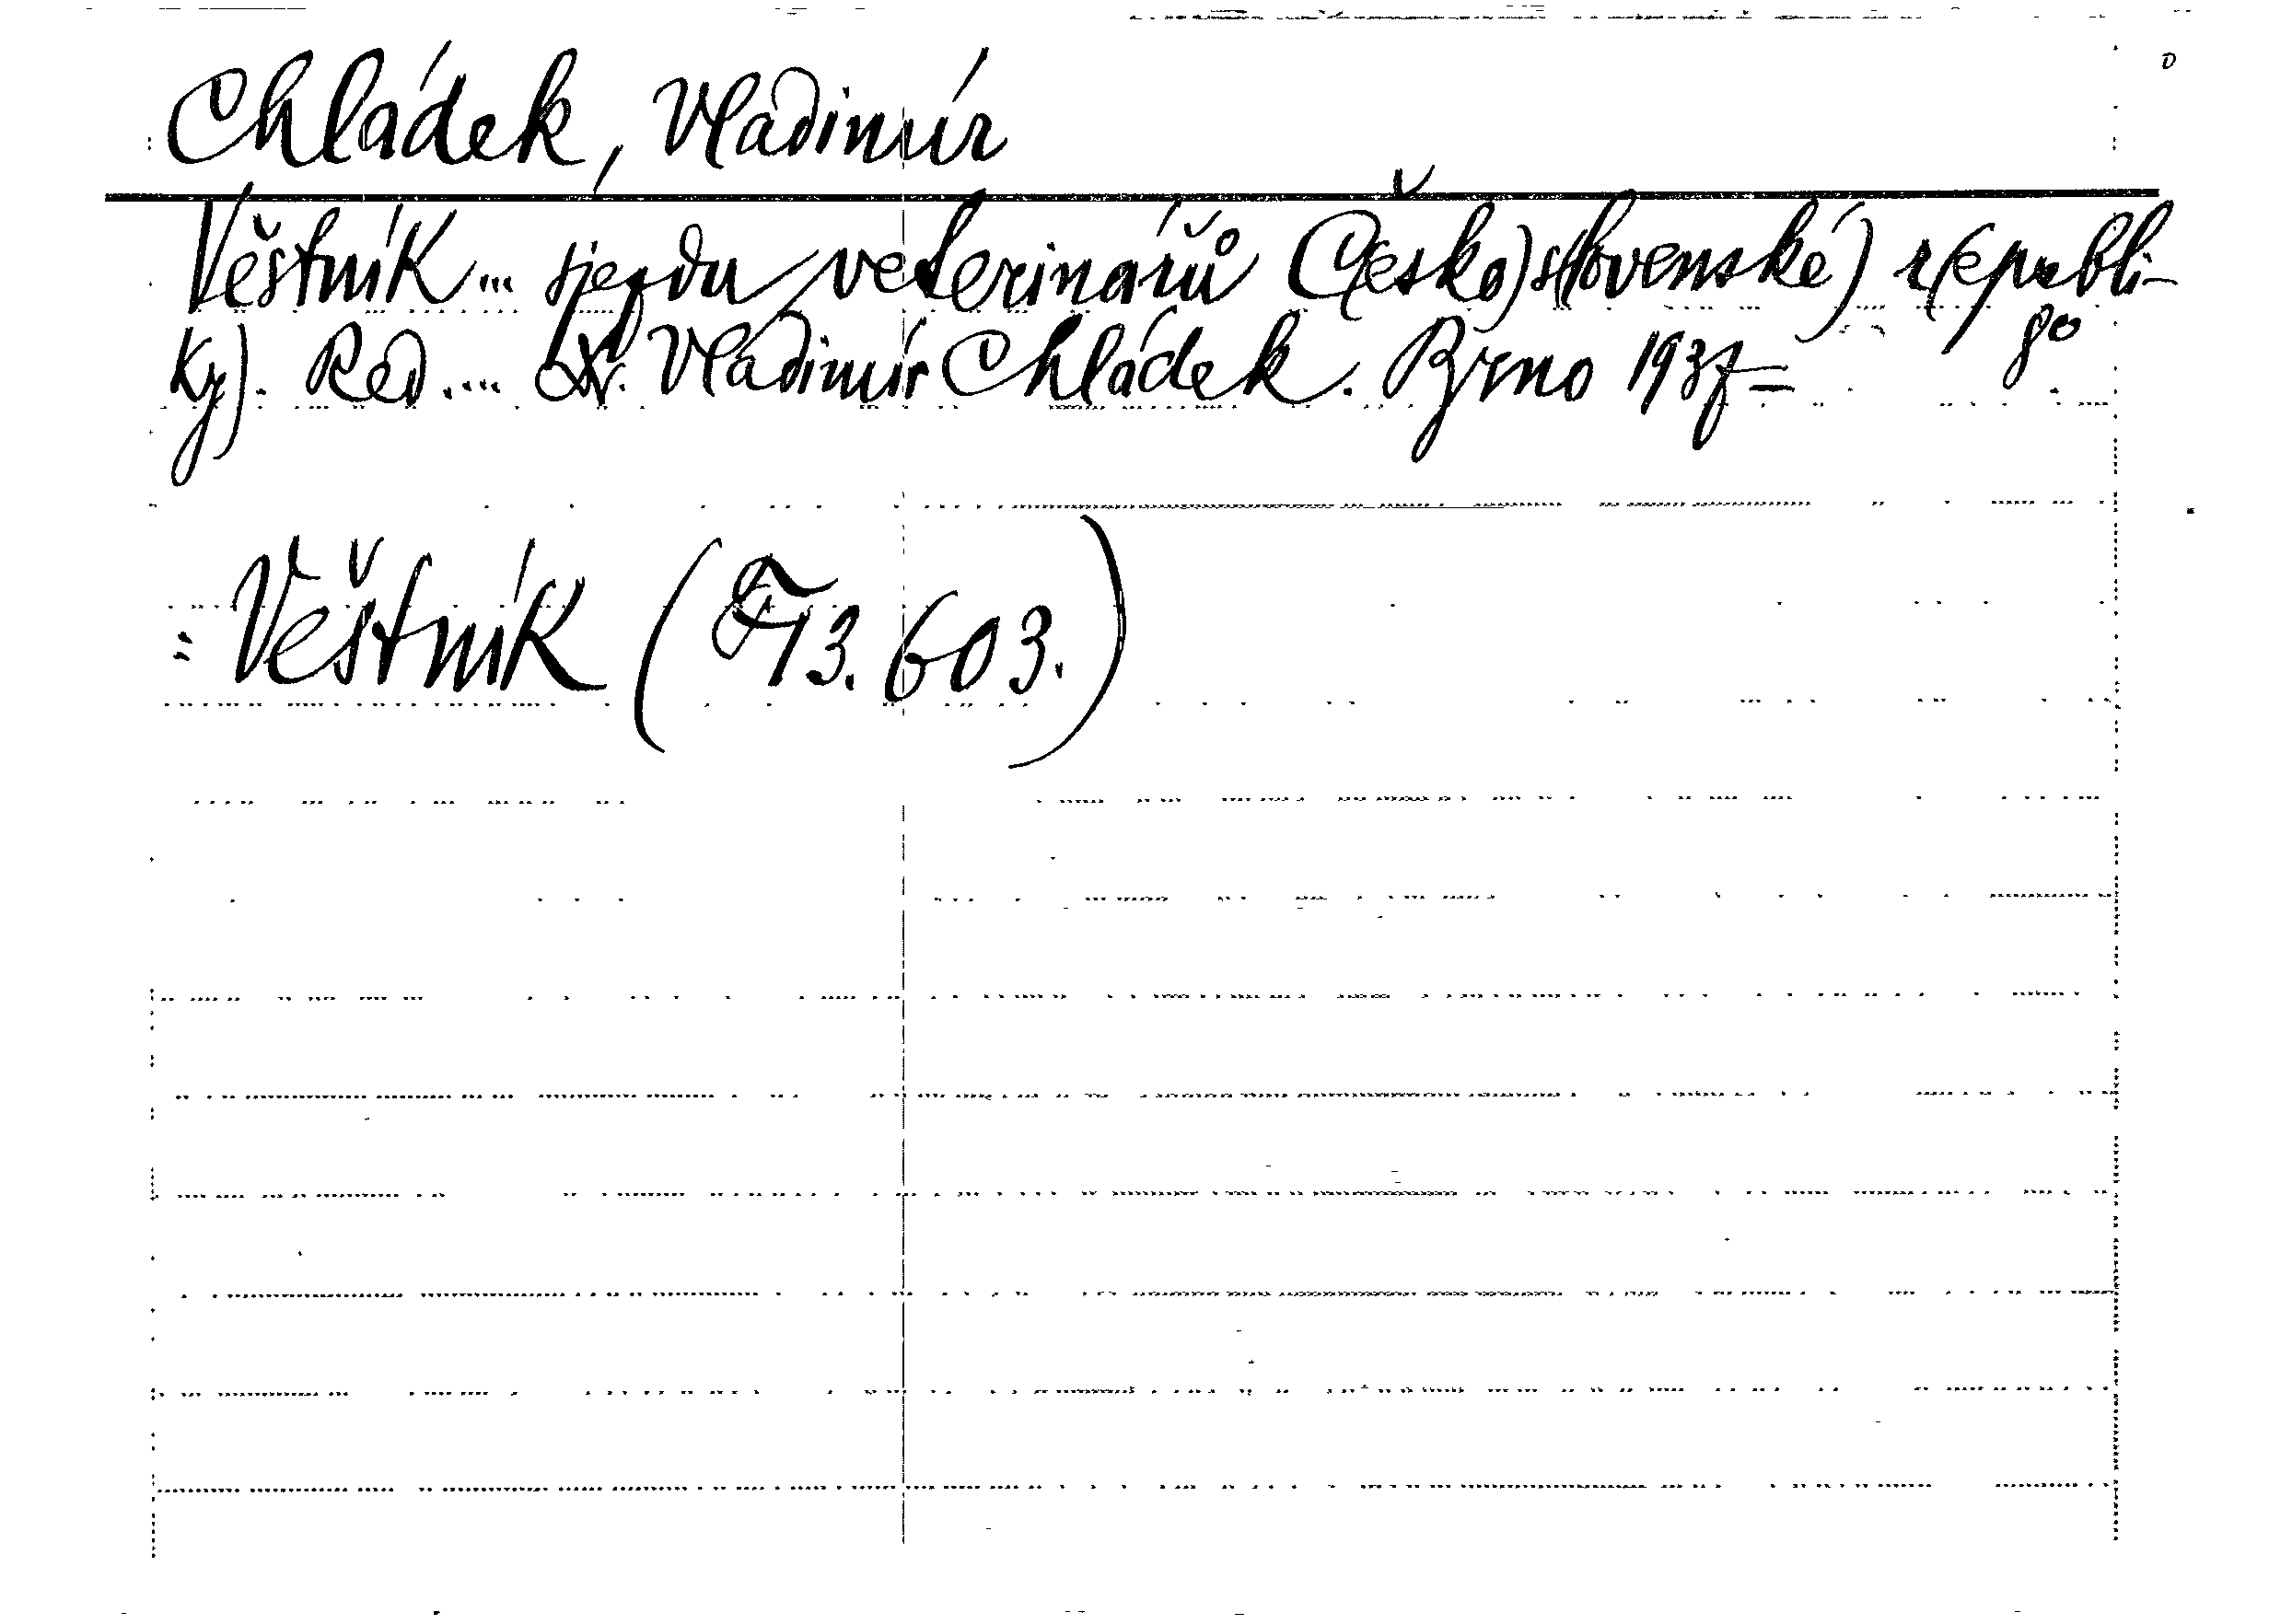 Chládek, Vladimír
Věstník ... sjezdu veterinářů Č(esko)s(lovenské) r(epubli-
ky). Red. ... Dr. Vladimír Chládek. Brno 1937= 8°
= Věstník ( 13.603.)